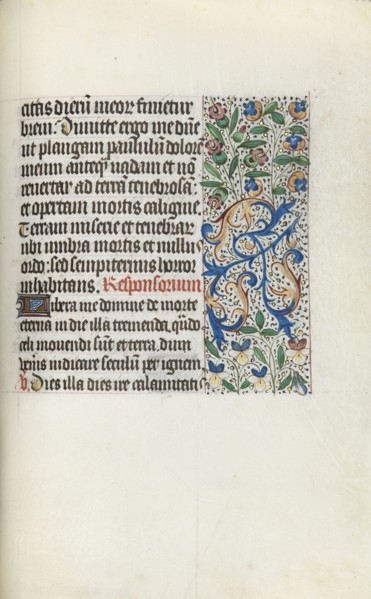 citas dierū meorꝝ finietur
breui. Dimitte ergo me dñe
ut plangam paululū dolorē
meum anteqᷓ uadam et nō
reuertar ad terrā tenebrosā:
et opertam mortis caligine.
Terram miserie et tenebrarꝝ
ubi umbra mortis et nullus
ordo: sed sempiternus horror
inhabitans. Responsorium
Libera me domine de morte
eterna in die illa tremenda, qñdo
celi mouendi sūt et terra, dum
veneris iudicare seculum per ignem
V. Dies illa dies ire calamitatis